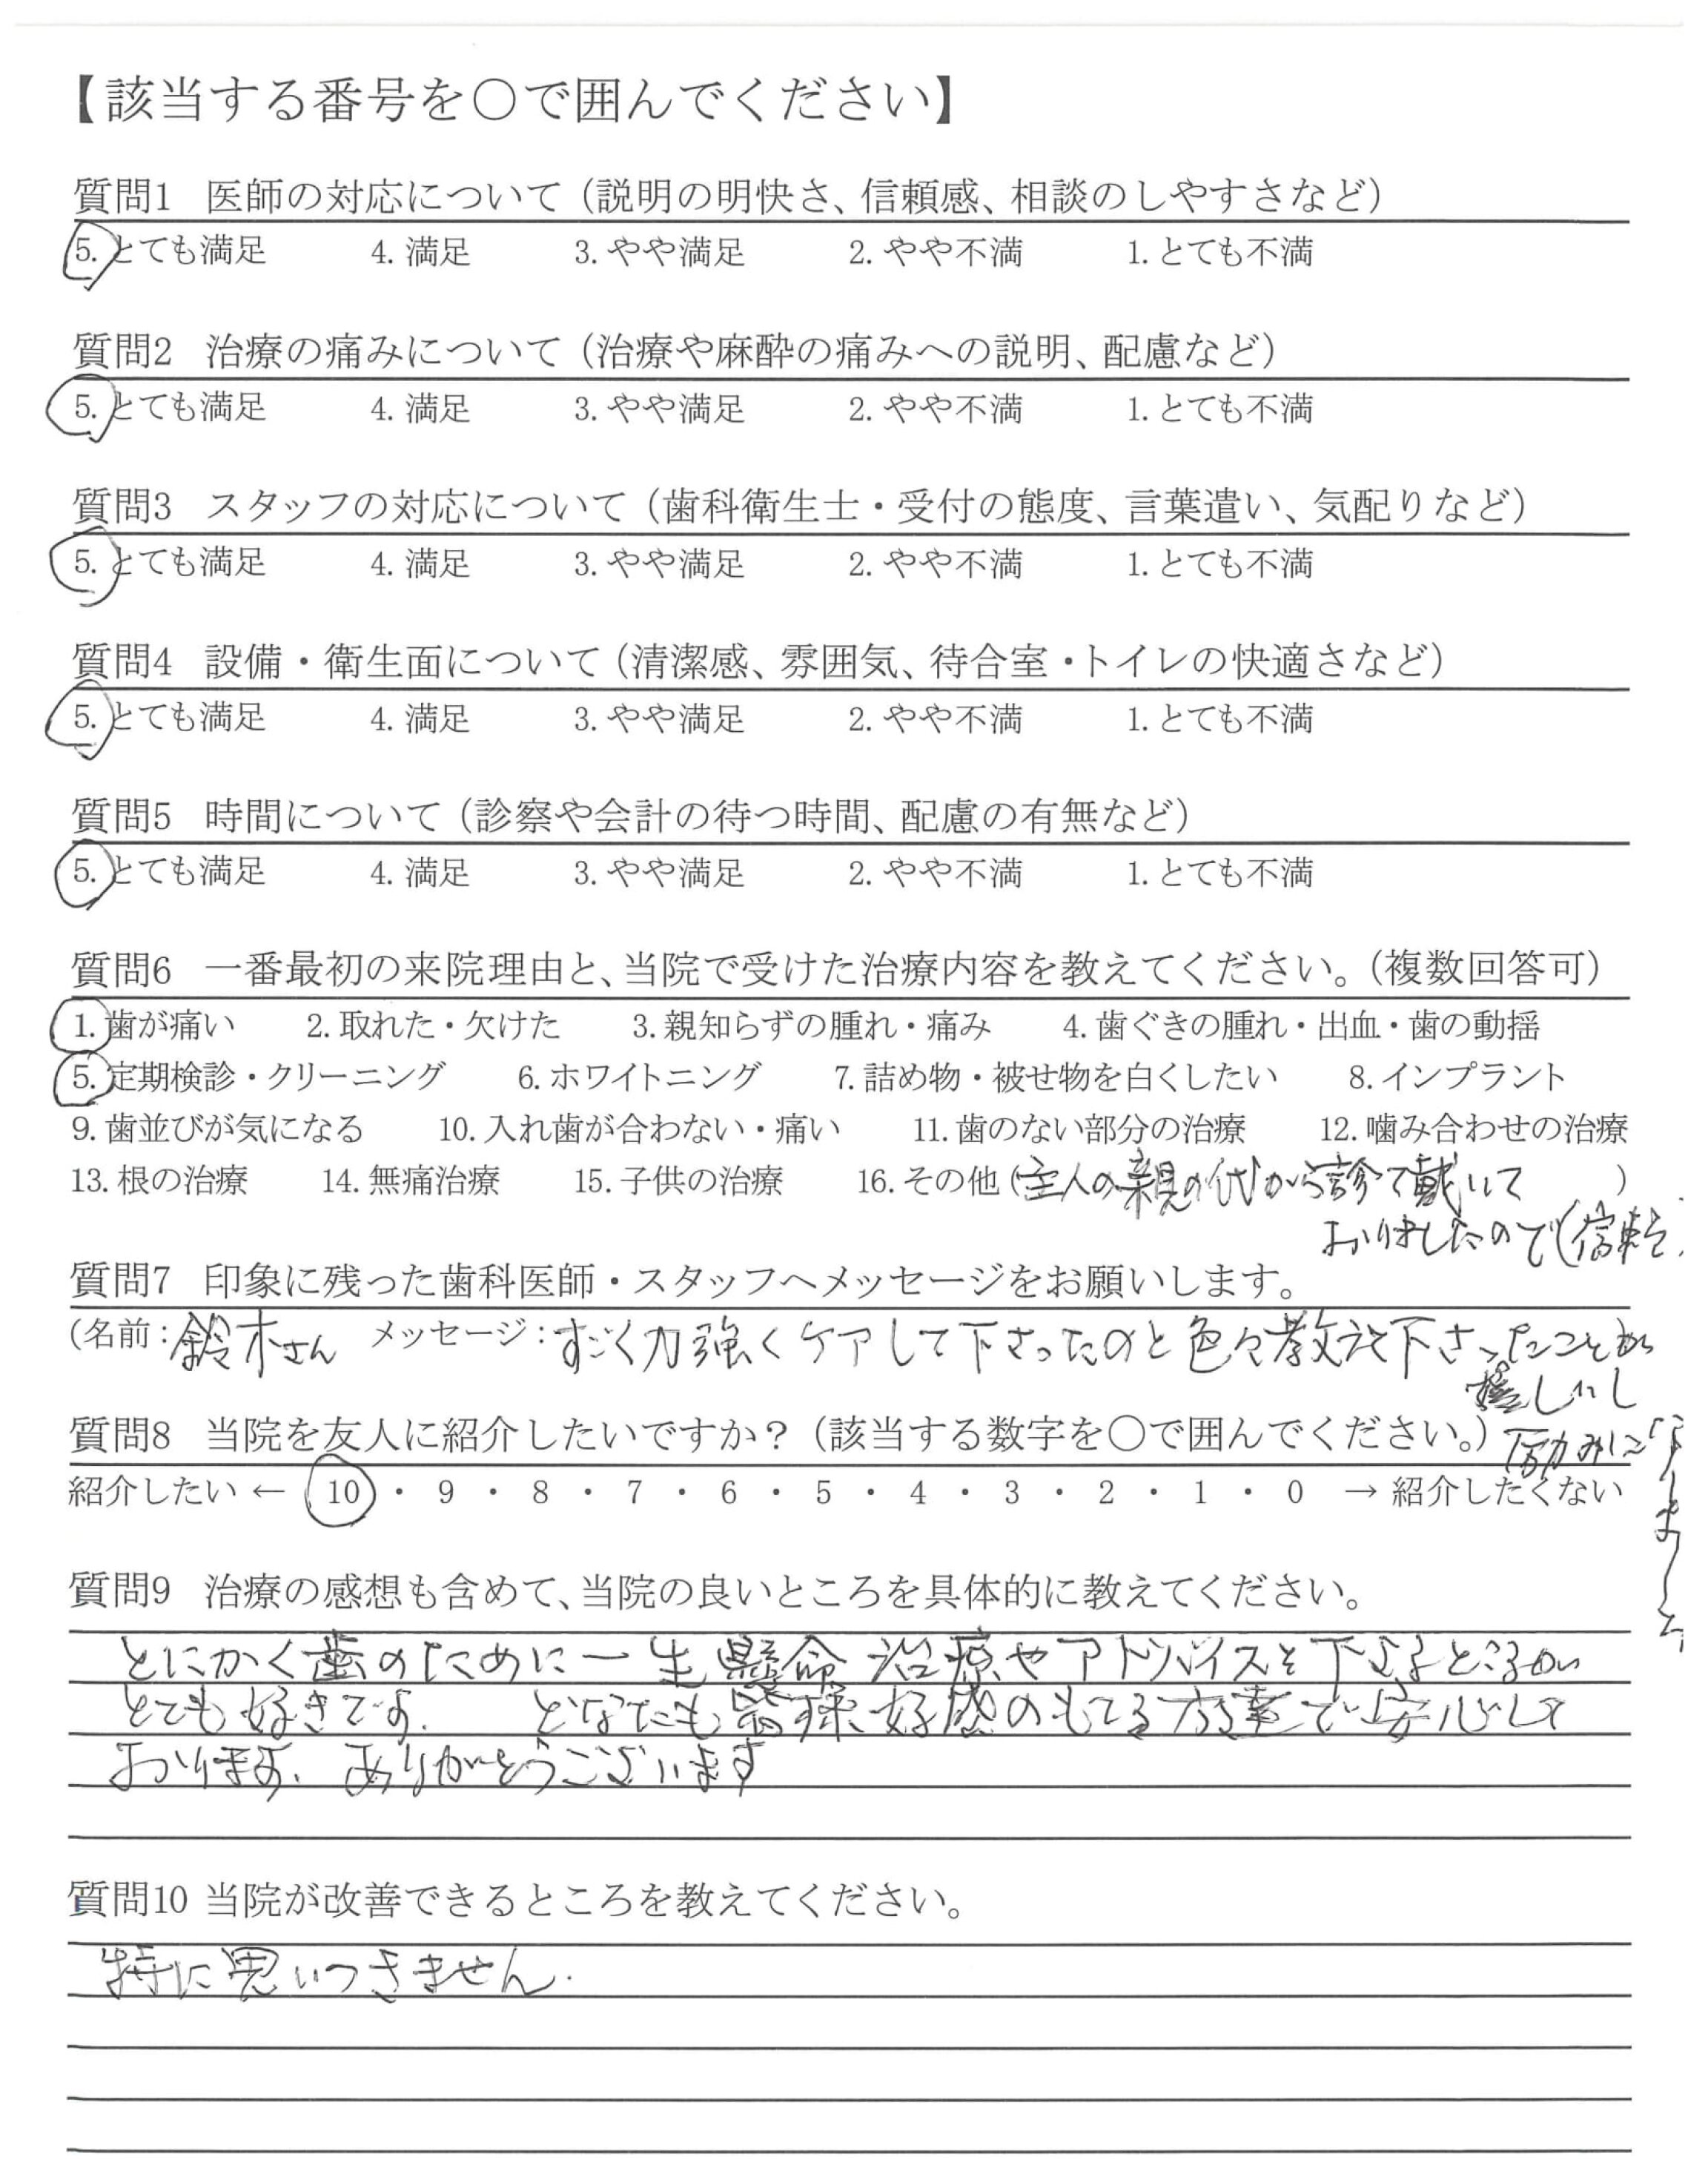 【該当する番号を〇で囲んでください】
質問1 医師の対応について（説明の明快さ、信頼感、相談のしやすさなど）
5. とても満足 4. 満足 3. やや満足 2. やや不満 1. とても不満
質問2 治療の痛みについて（治療や麻酔の痛みへの説明、配慮など）
5. とても満足 4. 満足 3. やや満足 2. やや不満 1. とても不満
質問3 スタッフの対応について（歯科衛生士・受付の態度、言葉遣い、気配りなど）
5. とても満足 4. 満足 3. やや満足 2. やや不満 1. とても不満
質問4 設備・衛生面について（清潔感、雰囲気、待合室・トイレの快適さなど）
5. とても満足 4. 満足 3. やや満足 2. やや不満 1. とても不満
質問5 時間について（診察や会計の待つ時間、配慮の有無など）
5. とても満足 4. 満足 3. やや満足 2. やや不満 1. とても不満
質問6 一番最初の来院理由と、当院で受けた治療内容を教えてください。（複数回答可）
1. 歯が痛い 2. 取れた・欠けた 3. 親知らずの腫れ・痛み 4. 歯ぐきの腫れ・出血・歯の動揺
5. 定期検診・クリーニング 6. ホワイトニング 7. 詰め物・被せ物を白くしたい 8. インプラント
9. 歯並びが気になる 10. 入れ歯が合わない・痛い 11. 歯のない部分の治療 12. 噛み合わせの治療
13. 根の治療 14. 無痛治療 15. 子供の治療 16. その他（主人の親の代から診て戴いて ）
おりましたので（信頼
質問7 印象に残った歯科医師・スタッフへメッセージをお願いします。
（名前：鈴木さん メッセージ：すごく力強くケアして下さったのと色々教えて下さったことが
嬉しいし
質問8 当院を友人に紹介したいですか？（該当する数字を〇で囲んでください。） 励みに
なりました
紹介したい ← 10 ・ 9 ・ 8 ・ 7 ・ 6 ・ 5 ・ 4 ・ 3 ・ 2 ・ 1 ・ 0 → 紹介したくない
質問9 治療の感想も含めて、当院の良いところを具体的に教えてください。
とにかく歯のために一生懸命治療やアドバイスを下さるところが
とても好きです。 どなたも皆様好感のもてる方達で安心して
おります。ありがとうございます
質問10 当院が改善できるところを教えてください。
特に思いつきません.